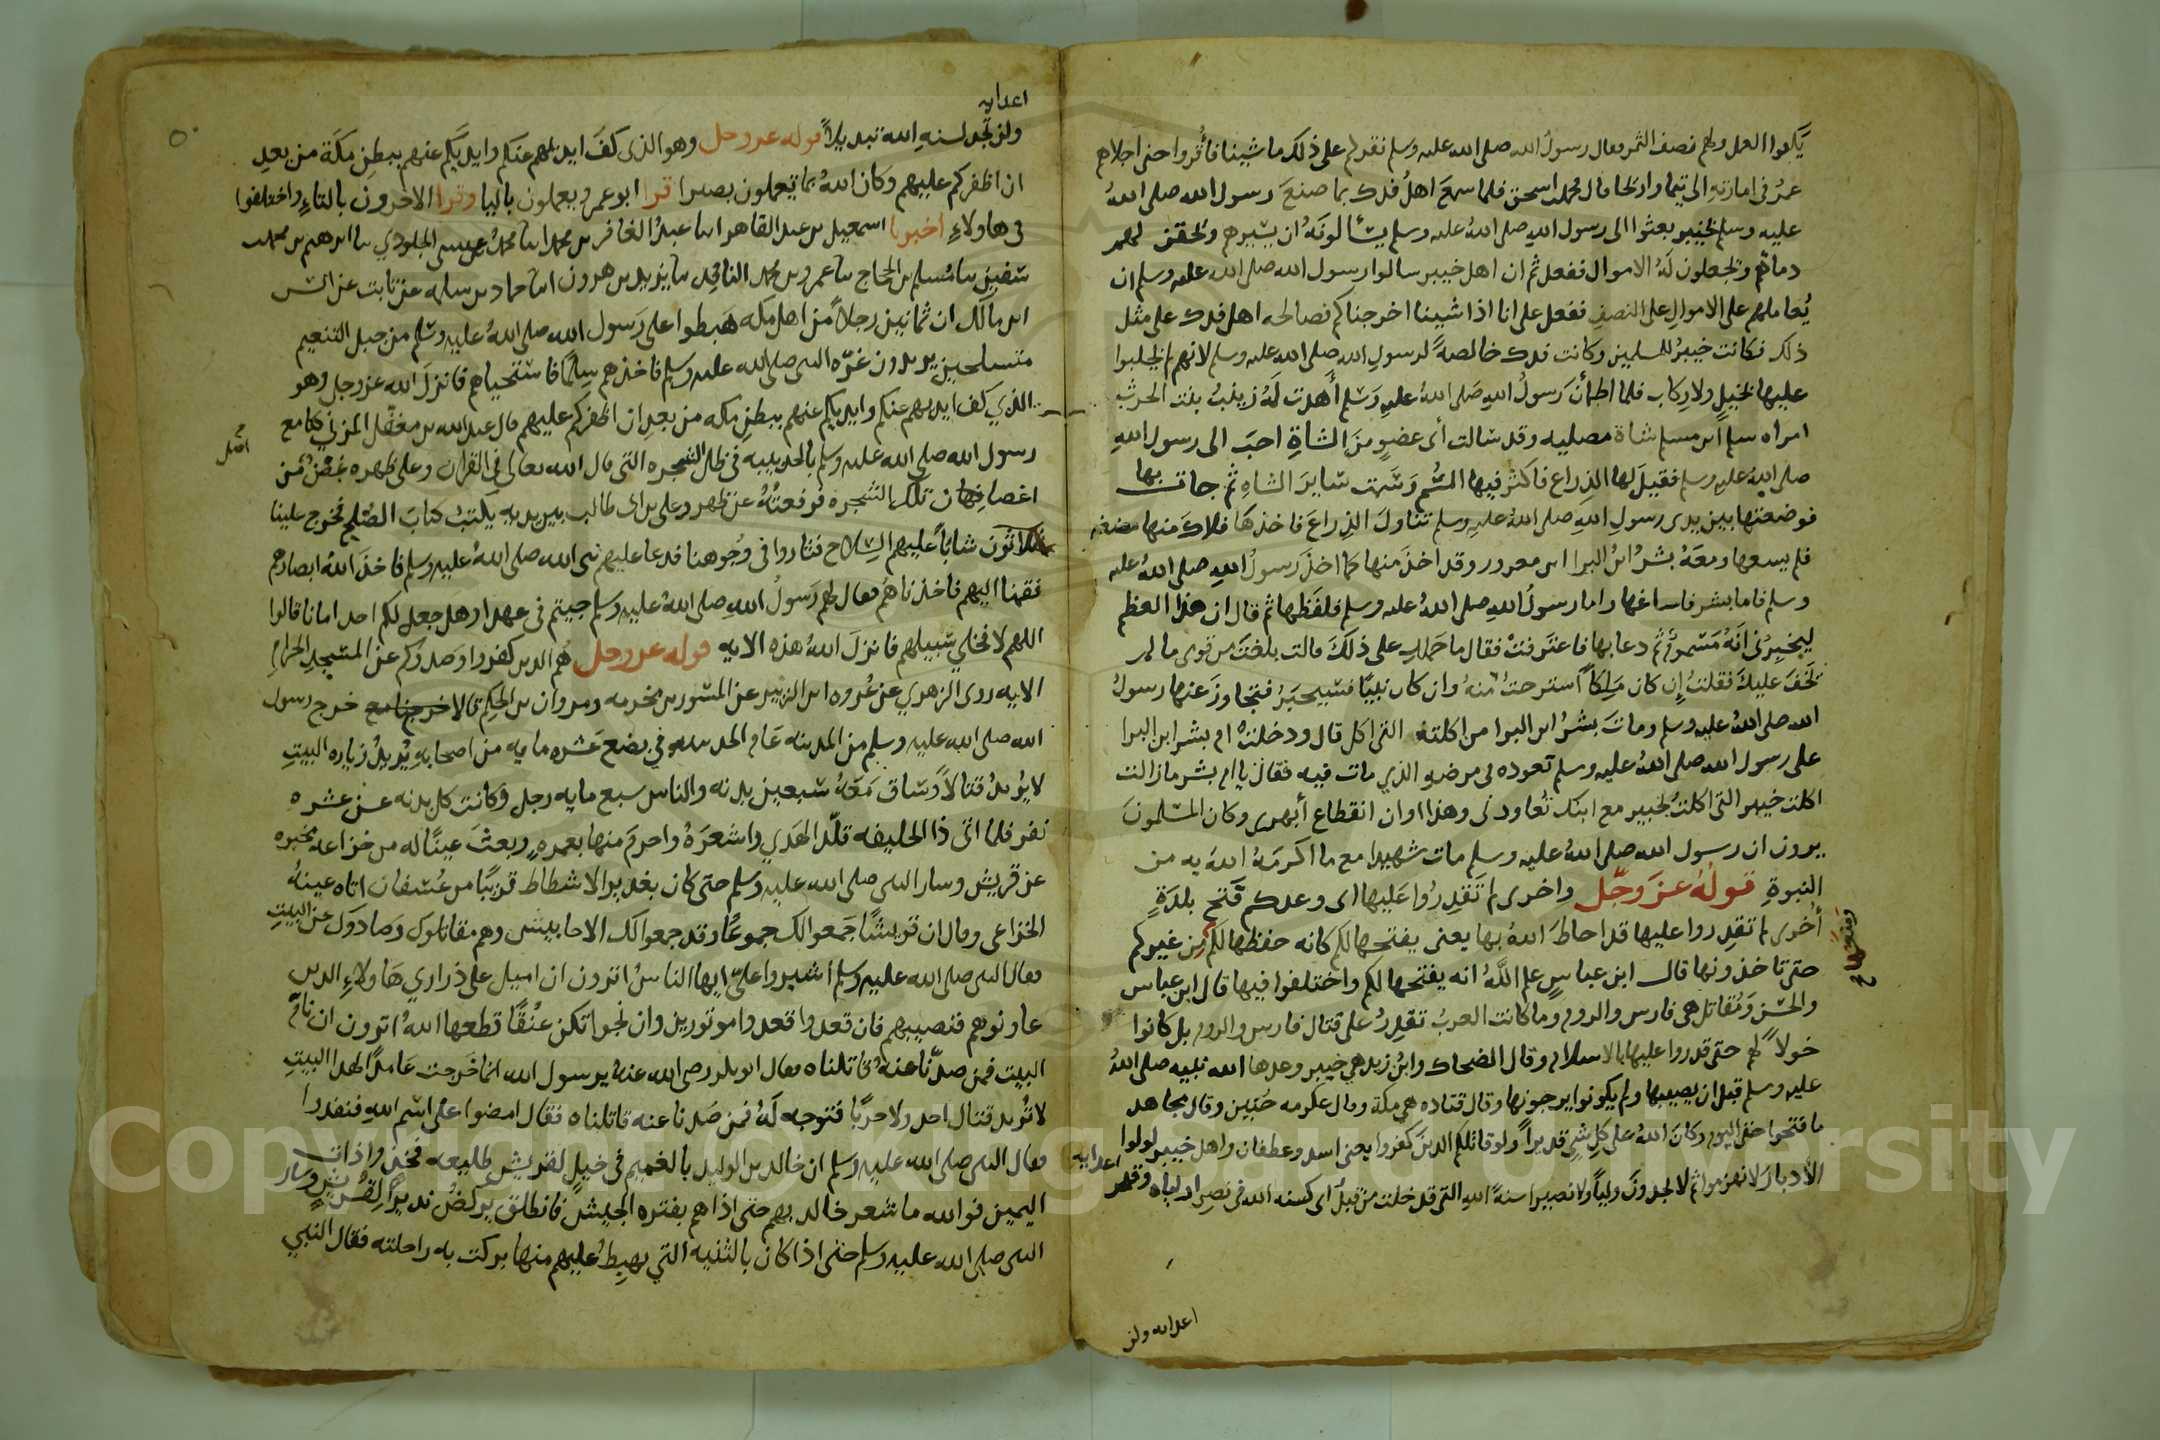 يكفوا العمل ولهم نصف الثمر فقال رسول الله صلى الله عليه وسلم نقركم على ذلك ما شينا فاقروا حتى اجلاهم
عمر في امارته الى تيما واريحا قال محمد بن اسحق فلما سمع اهل فدك بما صنع رسول الله صلى الله
عليه وسلم بخيبر بعثوا الى رسول الله صلى الله عليه وسلم يسألونه ان يسيرهم ويحقن لهم
دماهم ويجعلون له الاموال ففعل ثم ان اهل خيبر سالوا رسول الله صلى الله عليه وسلم ان
يُعاملهم على الاموال على النصف ففعل على انا اذا شينا اخرجناكم فصالحه اهل فدك على مثل
ذلك فكانت خيبر للمسلمين وكانت فدك خالصةً لرسول الله صلى الله عليه وسلم لانهم لم يجلبوا
عليها بخيل ولا ركاب فلما اطمأن رسول الله صلى الله عليه وسلم أهدت له زينب بنت الحرث
امراه سلام بن مسلم شاة مصليه وقد سالت أى عضو من الشاة احب الى رسول الله
صلى الله عليه وسلم فقيل لها الذراع فاكثر فيها السم وسمت ساير الشاه ثم جات بها
فوضعتها بين يدى رسول الله صلى الله عليه وسلم تناول الذراع فاخذها فلاك منها مضغه
فلم يسغها ومعه بشر ابن البرا ابن معرور وقد اخذ منها كما اخذ رسول الله صلى الله عليه
وسلم فاما بشر فاساغها واما رسول الله صلى الله عليه وسلم فلفظها ثم قال ان هذا العظم
ليخبرنى انه مسموم ثم دعا بها فاعترفت فقال ما حملك على ذلك قالت بلغت من قومى ما لم
يخف عليك فقلت إن كان ملكًا استرحت منه وان كان نبيًا فسيخبر فتجاوز عنها رسول
الله صلى الله عليه وسلم ومات بشر ابن البرا من اكلته التى اكل قال ودخلت ام بشر ابن البرا
على رسول الله صلى الله عليه وسلم تعوده فى مرضه الذي مات فيه فقال يا ام بشر ما زالت
اكلت خيبر التى اكلت بخيبر مع ابنك تعاودنى وهذا اوان انقطاع أبهرى وكان المسلمون
يرون ان رسول الله صلى الله عليه وسلم مات شهيدا مع ما اكرمه الله به من
النبوة قوله عز وجل واخرى لم تقدروا عليها اى وعدكم فتح بلدةٍ
أخرى لم تقدروا عليها قد احاط الله بها يعنى يفتحها لكم كانه حفظها لكم من غيركم
حتى تاخذونها قال ابن عباس علم الله انه يفتحها لكم واختلفوا فيها قال ابن عباس
والحسن ومقاتل هى فارس والروم وما كانت العرب تقدر على قتال فارس والروم بل كانوا
خولاً لهم حتى قدروا عليها بالاسلام وقال الضحاك وابن زيد هى خيبر وعدها الله نبيه صلى الله
عليه وسلم قبل ان يصيبها ولم يكونوا يرجونها وقال قتاده هى مكة وقال عكرمه حنين وقال مجاهد
ما فتحوا حتى اليوم وكان الله على كل شى قديراً ولو قاتلكم الذين كفروا يعنى اسد وغطفان واهل خيبر لولوا
الأدبار لانهزموا ثم لا يجدون ولياً ولا نصيرا سنة الله التى قد خلت من قبل اى كسنه الله فى نصر اوليايه وقهر
اعدايه
اعدايه ولن
اعدايه
ولن تجد لسنه الله تبديلاً قوله عز وجل وهو الذى كف ايديهم عنكم وايديكم عنهم ببطن مكة من بعد
ان اظفركم عليهم وكان الله بما تعملون بصيرا قرا ابو عمرو يعملون باليا وقرا الاخرون بالتاء واختلفوا
فى هاولاء اخبرنا اسمعيل بن عبد القاهر انا عبد الغافر بن محمد انا محمد بن عيسى الجلودي نا ابرهيم بن محمد بن
سفين نا مسلم بن الحجاج نا عمرو بن محمد الناقد نا يزيد بن هرون انا حماد بن سلمه عن ثابت عن انس
ابن مالك ان ثمانين رجلاً من اهل مكه هبطوا على رسول الله صلى الله عليه وسلم من جبل التنعيم
متسلحين يريدون غرّه النبى صلى الله عليه وسلم فاخذهم سلمًا فاستحياهم فانزل الله عز وجل وهو
الذي كف ايديهم عنكم وايديكم عنهم ببطن مكه من بعد ان اظفركم عليهم قال عبد الله بن مغفل المزني كنا مع
رسول الله صلى الله عليه وسلم بالحديبيه فى ظل الشجره التى قال الله تعالى فى القران وعلى ظهره غصن من
اغصان تلك الشجره فرفعته عن ظهره وعلى بن ابى طالب بين يديه يكتب كتاب الصلح فخرج علينا
ثلاثون شابًا عليهم السلاح فثاروا فى وجوهنا فدعا عليهم نبى الله صلى الله عليه وسلم فاخذ الله ابصارهم
فقمنا اليهم فاخذناهم فقال لهم رسول الله صلى الله عليه وسلم جيتم فى عهد او هل جعل لكم احد امانا قالوا
اللهم لا فخلي سبيلهم فانزل الله هذه الايه قوله عز وجل هم الذين كفروا وصدوكم عن المسجد الحرام
الايه روى الزهري عن عروه ابن الزبير عن المسور بن مخرمه ومروان بن الحكم قالا خرج رسول
الله صلى الله عليه وسلم من المدينه عام الحديبيه في بضع عشره مايه من اصحابه يريد زياره البيت
لا يريد قتالاً وساق معه سبعين بدنه والناس سبع مايه رجل وكانت كل بدنه عن عشره
نفر فلما اتى ذا الحليفه قلّد الهدي واشعره واحرم منها بعمره وبعث عينًا له من خزاعه يخبره
عن قريش وسار النبى صلى الله عليه وسلم حتى كان بغدير الاشطاط قريبًا من عسفان اتاه عينه
الخزاعى وقال ان قريشًا جمعوا لك جموعًا وقد جمعوا لك الاحابيش وهم مقاتلوك وصادوك عن البيت
فقال النبى صلى الله عليه وسلم اشيروا علىّ ايها الناس اترون ان اميل على ذراري هاولاء الذين
عاونوهم فنصيبهم فان قعدوا قعدوا موتورين وان نجوا تكن عنقًا قطعها الله اترون ان نامّ
البيت فمن صدّنا عنه قاتلناه فقال ابو بكر رضى الله عنه يرسول الله انما خرجت عامدًا لهذا البيت
لا تريد قتال احد ولا حربًا فتوجه له فمن صدنا عنه قاتلناه فقال امضوا على اسم الله فنفدوا
فقال النبى صلى الله عليه وسلم ان خالد بن الوليد بالغميم فى خيل لقريش طليعه فخذوا ذات
اليمين فوالله ما شعر خالد بهم حتى اذا هم بقتره الجيش فانطلق يركض نديرًا لقريش وسار
النبى صلى الله عليه وسلم حتى اذا كان بالثنيه التي يهبط عليهم منها بركت به راحلته فقال النبي
Copyright © King Saud University